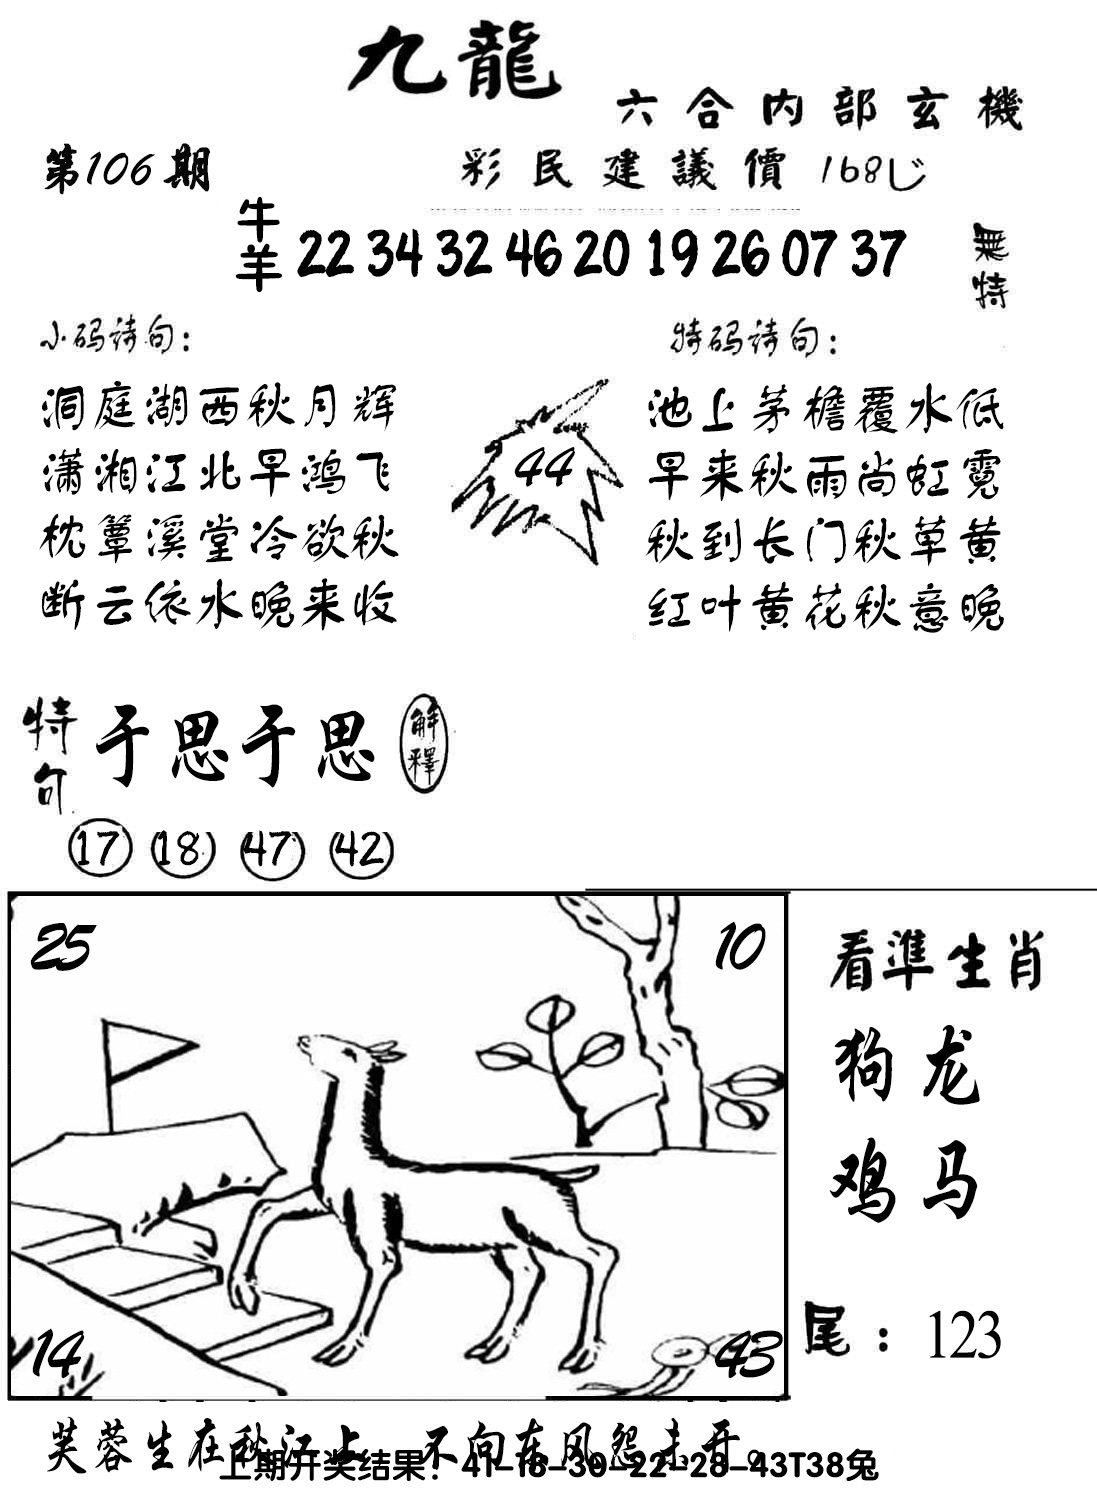 九龍
六合内部玄機
第106期
彩民建議價 168
牛羊 22 34 32 46 20 19 26 07 37 無特
小码诗句：
洞庭湖西秋月辉
潇湘江北早鸿飞
枕簟溪堂冷欲秋
断云依水晚来收
44
特码诗句：
池上茅檐覆水低
早来秋雨尚虹霓
秋到长门秋草黄
红叶黄花秋意晚
特句 于思于思 解釋
17 18 47 42
25 10
14 43
看準生肖
狗龙
鸡马
尾：123
芙蓉生在秋江上 不向东风怨未开。
上期开奖结果：41-18-30-22-28-43T38兔